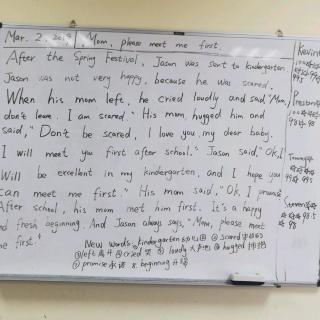 Mar. 2, 2019 Mom, please meet me first.
After the Spring Festival, Jason was sent to kindergarten
Jason was not very happy, because he was scared.
When his mom left, he cried loudly and said, "Mom,
don't leave. I am scared." His mom hugged him and
said, "Don't be scared, I love you, my dear baby.
I will meet you first after school." Jason said, "Ok, I
Will be excellent in my kindergarten, and I hope you
can meet me first." His mom said, "Ok, I promise
After school, his mom met him first. It's a happy
and fresh beginning. And Jason always says, "Mom, please meet
me first."
New words: ① kindergarten 幼儿园 ② scared
③ left 离开 ④ cried 哭 ⑤ loudly 大声地 ⑥ hugged 拥抱
⑦ promise 承诺 8. beginning 开端
Kevin
Preston
98
Steven
98